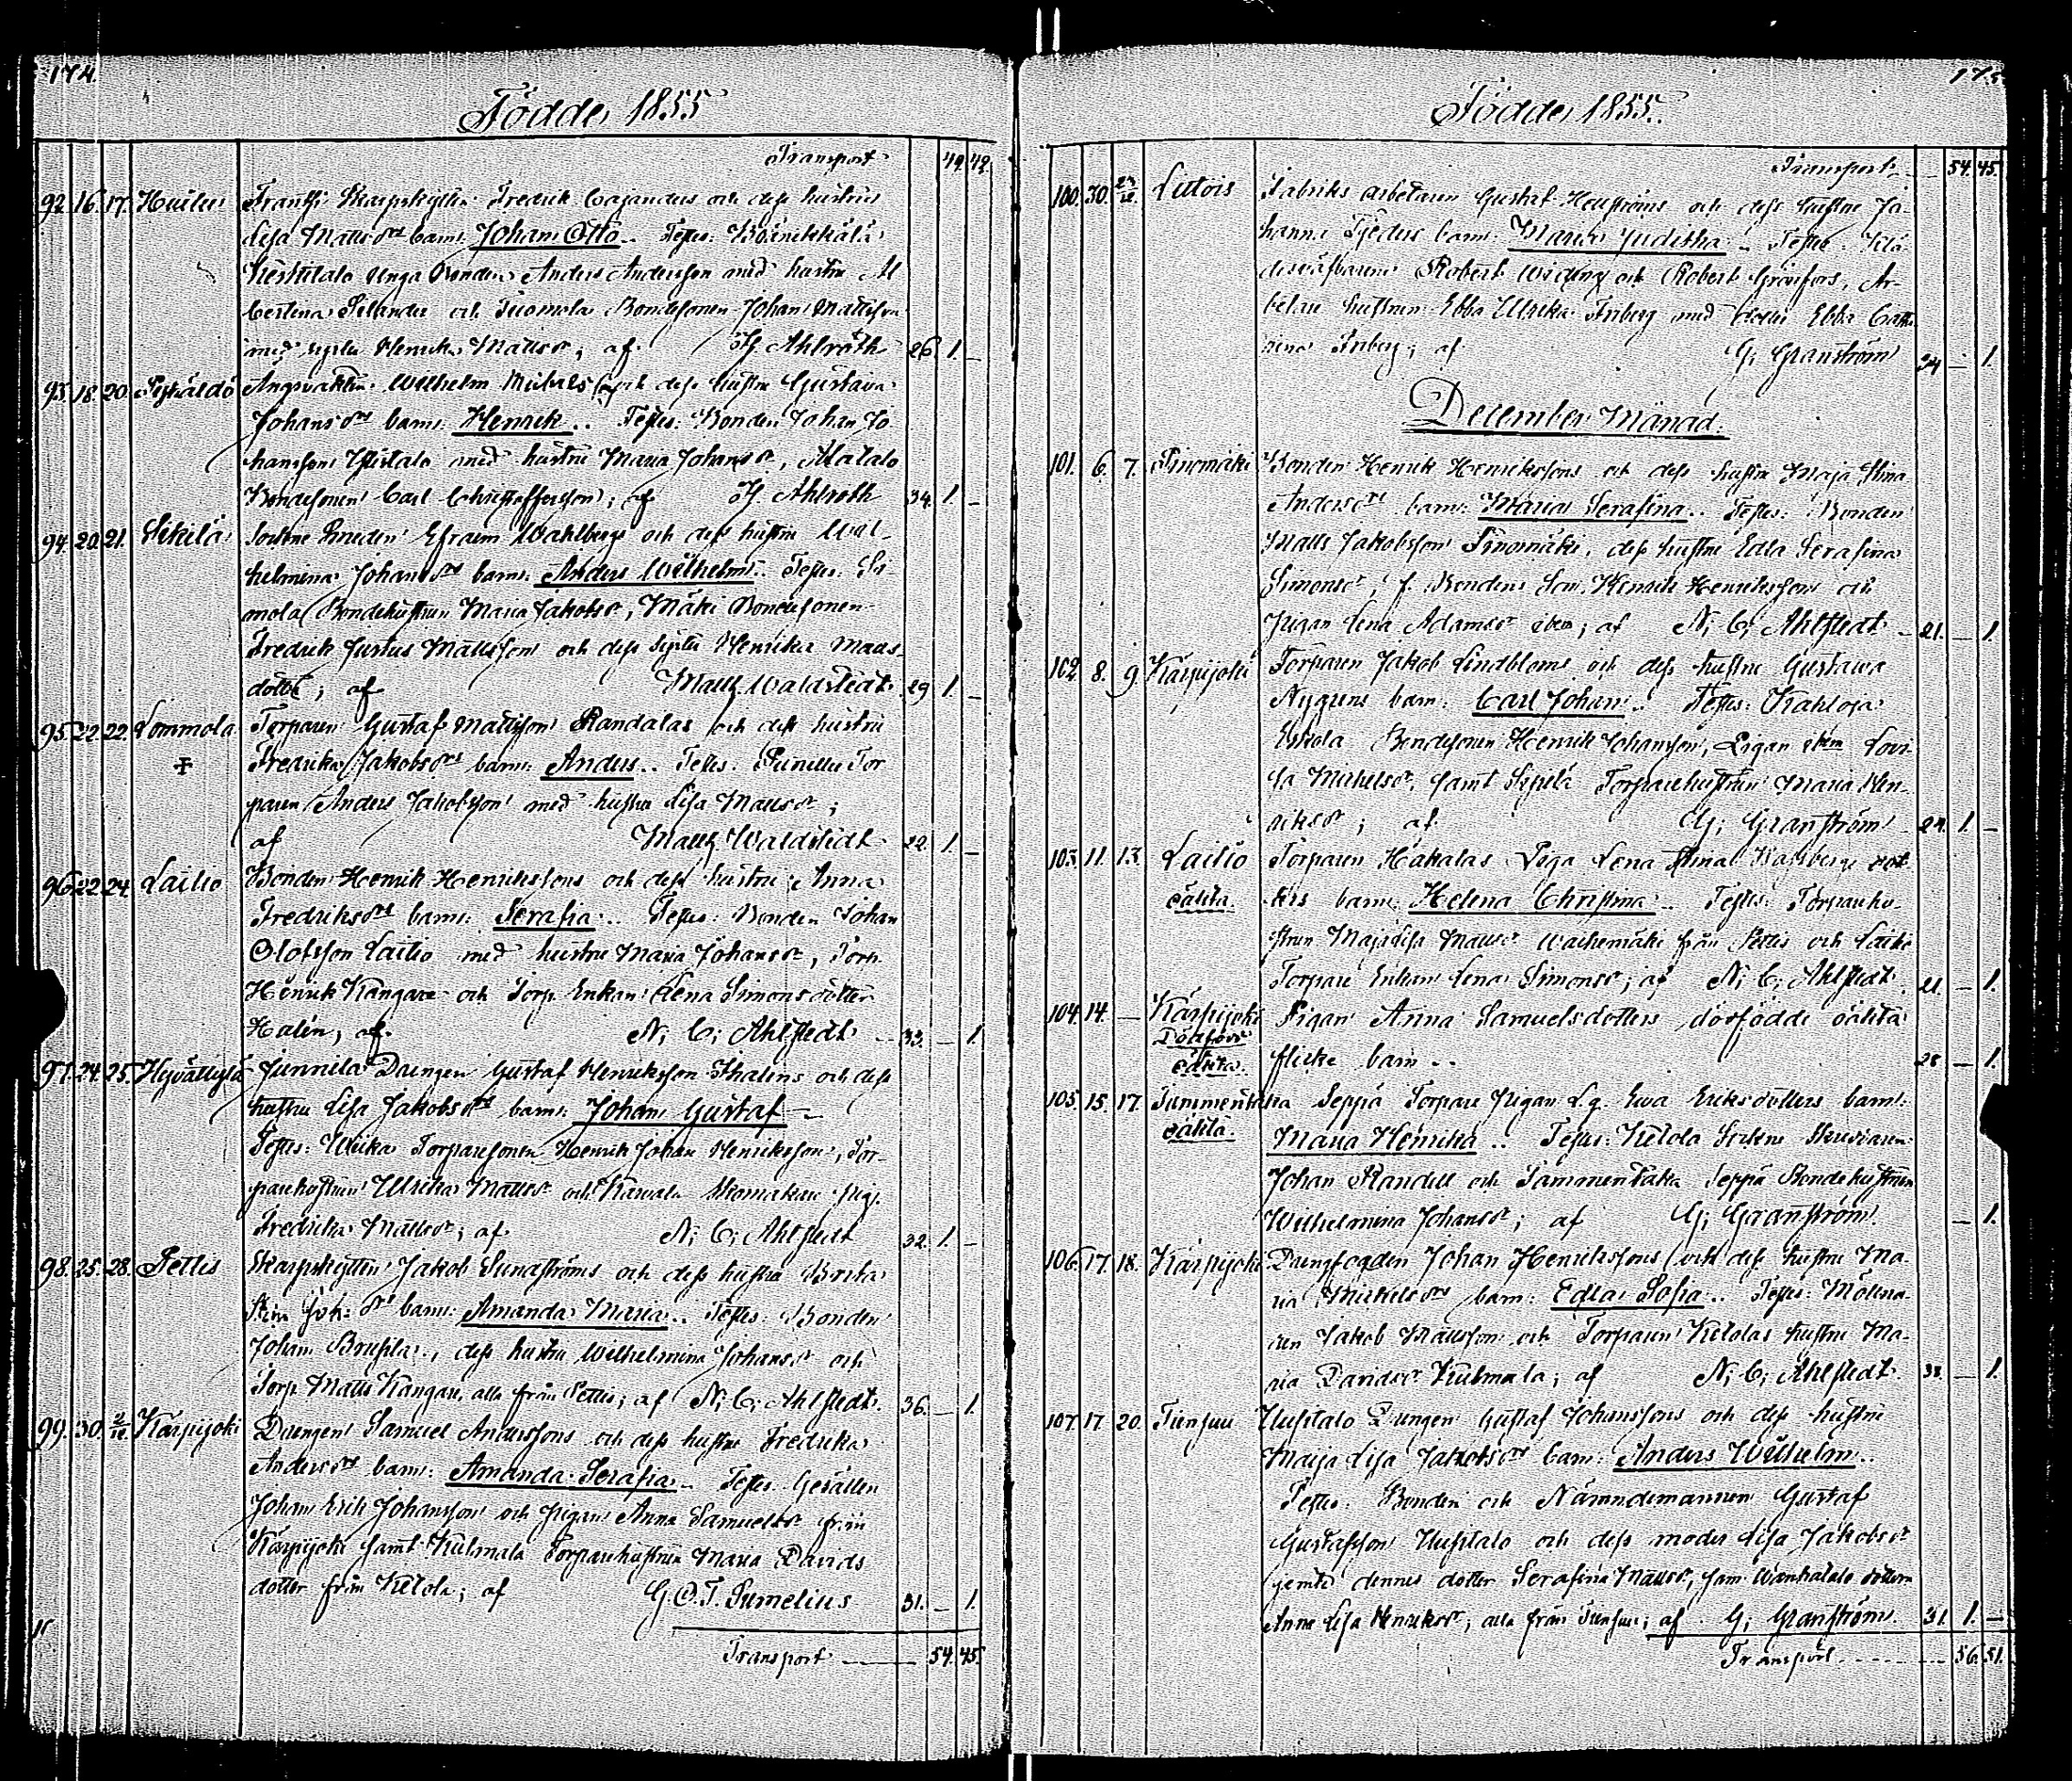 174.
Födde, 1855
Transport 49. 42.
92. 16. 17. Huilu Skarpskytten Fredrik Cajanders och dess hustrus
Lisa Mattsdrs barn: Johan Otto.. Testes:
Unga Bonden Anders Andersson med hustru Al
bertina Selander och Tuomola Bondesonen Johan Mattsson
med syster Henrika Mattsdr; af H. Ahlroth 26. 1. _
93. 18. 20. Wilhelm Michels och dess hustru Gustava
Johansdrs barn: Henrik.. Testes: Bonden Johan Jo
hansson Ylistalo med hustru Maria Johansdr, Alatalo
Bondesonen Carl Christoffersson; af H. Ahlroth 34. 1. _
94. 20. 21. Sikilä Sockne Smeden Efraim Wahlbergs och dess hustru Wil-
helmina Johansdrs barn: Anders Wilhelm.. Testes:
mola Bondehustrun Maria Jakobsdr, Mäki Bondesonen
Fredrik Justus Mattsson och dess syster Henrika Matts-
dotter; af Matth. Waldstedt 29 1. _
95. 22. 22. Lommola Torparen Gustaf Mattsson Randalas och dess hustru
Fredrika Jakobsdrs barn: Anders.. Testes: Tor
paren Anders Jakobsson med hustru Lisa Mattsdr;
af Matth. Waldstedt 22. 1. _
96. 22. 24. Lailio Bonden Henrik Henrikssons och dess hustru Anna
Fredriksdrs barn: Serafia.. Testes: Bonden Johan
Olofsson Lailio med hustru Maria Johansdr, Torp.
Henrik Kangare och Torp. Enkan Lena Simonsdotter
Halén; af N. C. Ahlstedt 33. _ 1.
97. 24. 25. Hyvälkylä Junnila Drengen Gustaf Henriksson Thalens och dess
hustru Lisa Jakobsdrs barn: Johan Gustaf
Testes: Uusika Torparesonen Henrik Johan Henriksson, Tor-
parehustrun Ulrika Mattsdr och Skomakare Pig.
Fredrika Mattsdr; af N. C. Ahlstedt 32. 1. _
98. 25. 28. Pettis Skarpskytten Jakob Sundströms och dess hustru Brita
Stina Joh:drs barn: Amanda Maria.. Testes: Bonden
Johan Brusila, dess hustru Wilhelmina Johansdr och
Torp. Matts Kangare, alla från Pettis; af N. C. Ahlstedt. 36. _ 1.
99. 30. 2/12. Karpijoki Drengen Samuel Anderssons och dess hustru Fredrika
Andersdrs barn: Amanda Serafia.. Testes: Gesällen
Johan Erik Johansson och Pigan Anna Samuelsdr från
Karpijoki samt Kulmala Torparehustrun Maria Davids
dotter från Ketola; af G. O. T. Sumelius 31. _ 1.
Transport 54. 45.
175
Födde, 1855.
Transport 54. 45.
100. 30. 12. Lutois Fabriks arbetaren Gustaf Henströms och dess hustru Jo-
hanna Tjeders barn: Maria Juditha.. Testes:
Robert Widing och Robert Grönfors, Ar-
betare hustrun Ebba Ulrika Friberg med dotter Ebba Catha
rina Friberg; af G. Granström 24 _ 1.
December Månad.
101. 6. 7. Sinomäki Bonden Henrik Henrikssons och dess hustru Maja Stina
Andersdrs barn: Maria Serafina.. Testes: Bonden
Matts Jakobsson Sinomäki, dess hustru Edla Serafina
Simonsdr, f. Bondens Son Henrik Henriksson och
Pigan Lena Adamsdr ibm; af N. C. Ahlstedt 21. _ 1.
102. 8. 9. Karpijoki Torparen Jakob Lindbloms och dess hustru Gustawa
Nygrens barn: Carl Johan.. Testes: Kahloja
Eskola Bondesonen Henrik Johansson, Pigan ibm Lovi-
sa Michelsdr, samt Seppilä Torparehustrun Maria Hen-
riksdr; af G. Granström 24. 1. _
103. 11. 13. Lailio Torparen Hakalas Piga Lena Stina dot-
oäkta. ters barn: Helena Christina.. Testes: Torparehu-
strun Maja Lisa Mattsdr Waihemäki från Pettis och Lailio
Torpare Enkan Lena Simonsdr; af N. C. Ahlstedt. 21. _ 1.
104. 14. _ Karpijoki Pigan Anna Samuelsdotters dödfödde oäkta
Dödfödd oäkta. flicke barn.. 28 _ 1.
105. 15. 17. Tammentaka Seppä Torpare Pigan Ewa Eriksdotters barn:
oäkta. Maria Henrika.. Testes: Ketola Sockne Skräddaren
Johan Randell och Tammentaka Seppä Bondehustrun
Wilhelmina Johansdr; af G. Granström. _ 1.
106. 17. 18. Karpijoki Drengfogden Johan Henrikssons och dess hustru Ma-
ria Michelsdrs barn: Edla Sofia.. Testes: Mölna-
ren Jakob Mattsson och Torparen Ketolas hustru Ma-
ria Davidsdr Kulmala; af N. C. Ahlstedt. 33. _ 1.
107. 17 20. Tiensuu Uusitalo Drengen Gustaf Johanssons och dess hustru
Maija Lisa Jakobsdrs barn: Anders Wilhelm..
Testes: Bonden och Nämndemannen Gustaf
Gustafsson Uusitalo och dess moder Lisa Jakobsdr
jemte dennes dotter Serafina Mattsdr, sam Wanhatalo dottern
Anna Lisa Henriksdr; alla från Tiensuu; af G. Granström. 31. 1. _
Transport 56. 51.